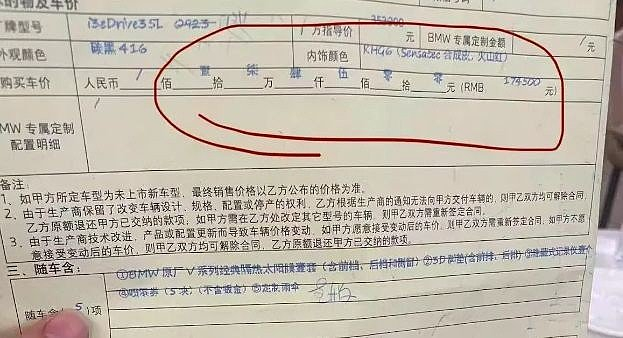 的物及车价
牌型号 i3eDrive35L 2923 厂方指导价 353900 元 BMW 专属定制金额 / 元
外观颜色 碳黑416 内饰颜色 KHG6 (Sensatec 合成皮,火山红)
购买车价 人民币 / 佰 壹 拾 柒 万 肆 仟 伍 佰 零 拾 零 元 (RMB 174500 元)
MW 专属定制
配置明细 /
备注:
1、如甲方所定车型为未上市新车型,最终销售价格以乙方公布的价格为准。
2、由于生产商保留了改变车辆设计、规格、配置或停产的权利,乙方根据生产商的通知无法向甲方交付车辆的,则甲乙双方均可解除合同,
乙方原额退还甲方已交纳的款项;如甲方需在乙方处改定其它型号的车辆,则甲乙双方需重新签定合同。
3、由于生产商技术改进、产品或配置更新而导致车辆价格变动,如甲方愿意接受变动后的车价,则甲乙双方需重新签定合同,如甲方不愿
意接受变动后的车价,则甲乙双方均可解除合同,乙方原额退还甲方已交纳的款项。
三、随车含:
①BMW 原厂 V 系列经典隔热太阳膜壹套(含前档、后档和侧窗)②3D脚垫(含前排、后排)③隐藏式记录仪壹个
④喷漆券(5次)(不含钣金)⑤定制雨伞
随车含(5)项